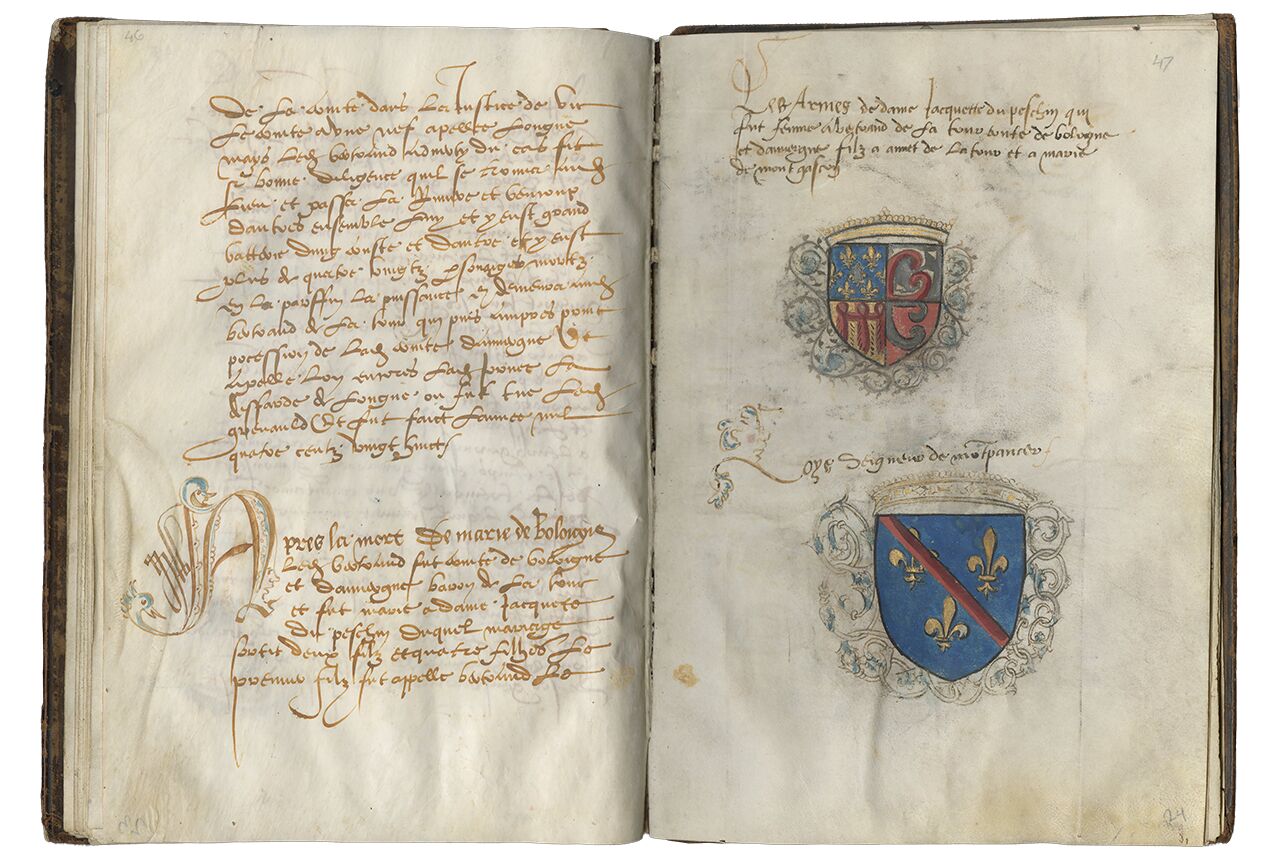 46
De La conte dans La Justice de Vic
Le conte a une nef apelee Longue
mays Led bertrand adverty du cas fit
si bonne diligence quil se trouva aud
Lieu et passa La Riviere et
dautres ensemble Luy et y eust grand
batterie dung couste et dautre et y eust
plus de quatre vingtz personaiges mortz
en La parffin La puissance en demeura aud
bertrand de La tour qui puis ampres print
pocession de Lad conte dauvergne Et
apelle Lon encores Lad La
de Longue ou fut tue Led
Et fut faict Lannee mil
quatre centz vingt huict
Apres La mort De marie de Boloigne
Led bertrand fut conte de boloigne
et dauvergne baron de La tour
et fut marie a dame Jacquete
du peschin duquel mariaige
sortit deux filz et quatre filhes Le
premier filz fut appelle bertrand Le
47
Les Armes de dame Jacquette du peschin qui
fut femme a bertrand de La tour conte de bologne
et dauvergne filz a annet de La tour et a marie
de mont gascon
Loys Seigneur de motpancier
24